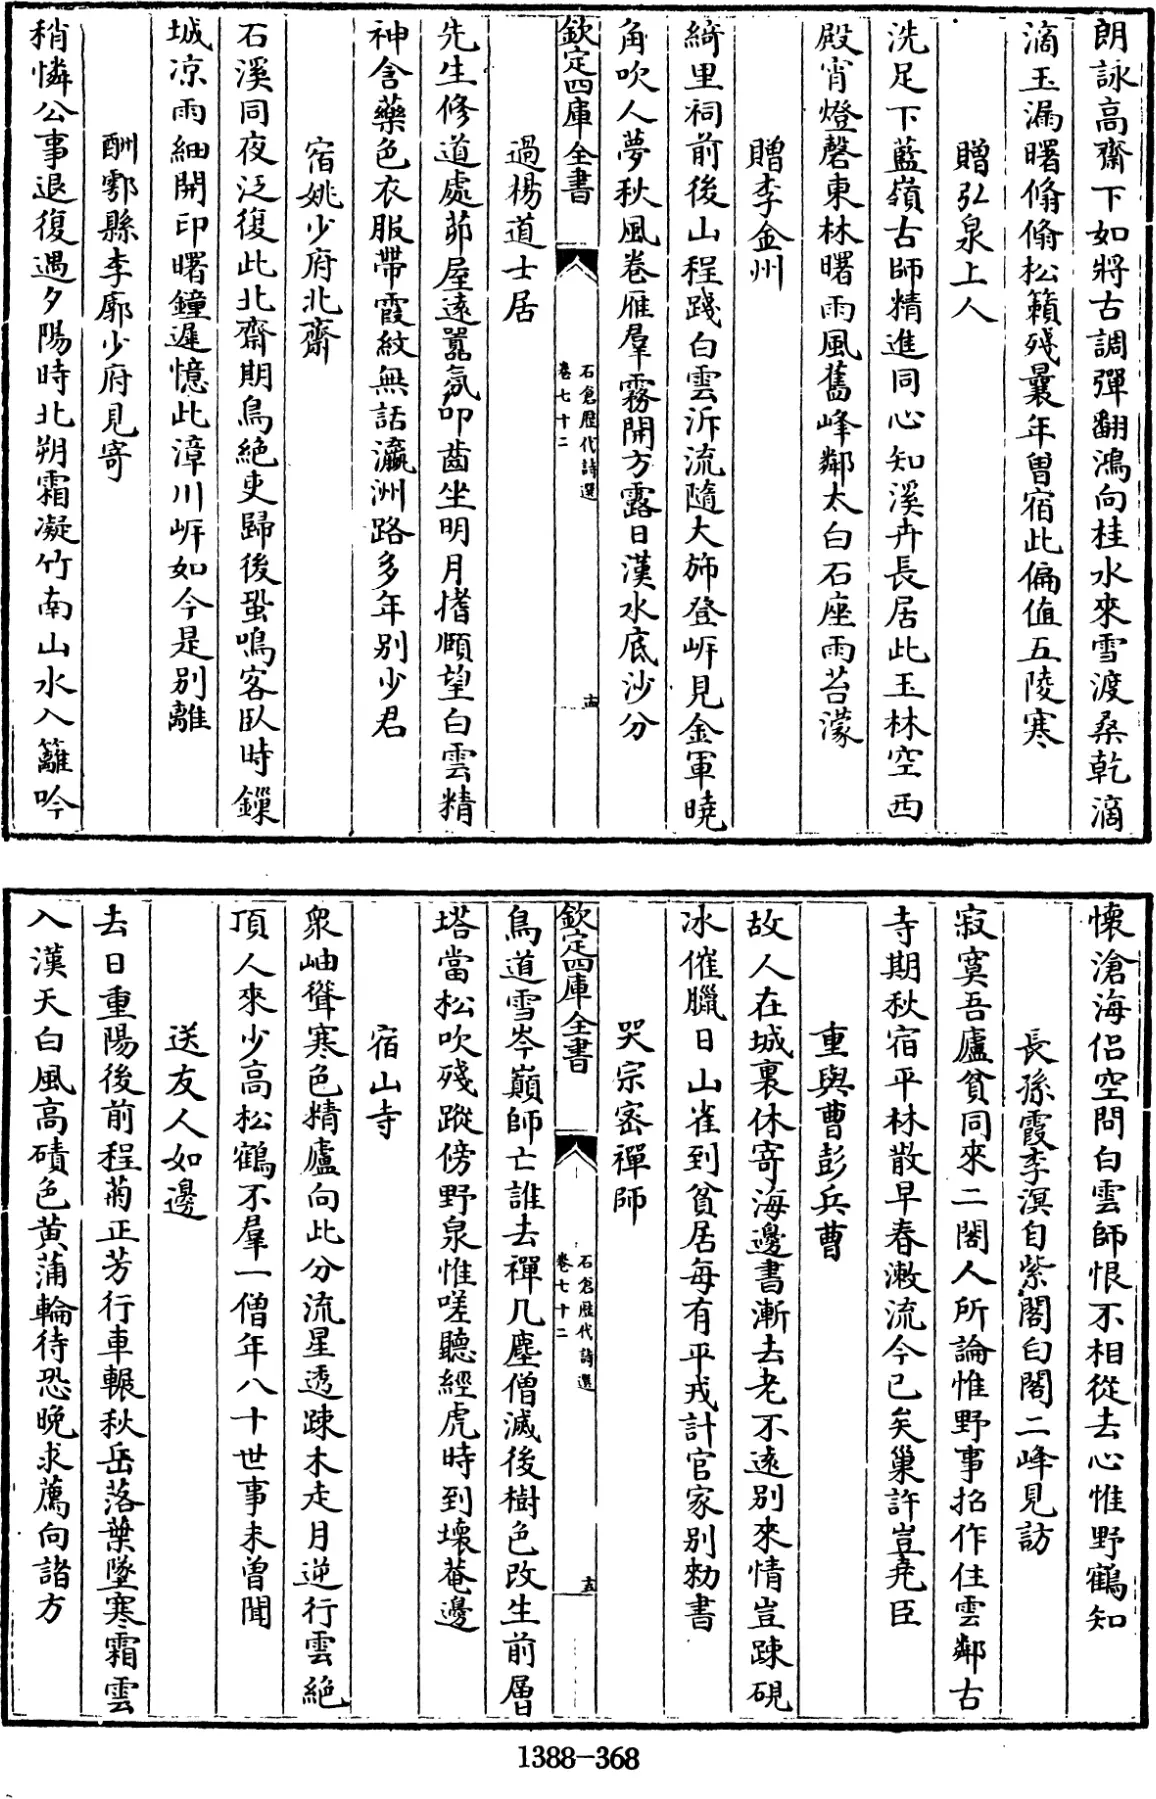 朗詠高齋下如將古調彈翻鴻向桂水來雪渡桑乾滴
滴玉漏曙翛翛松籟殘曩年曽宿此偏值五陵寒
贈弘泉上人
洗足下藍嶺古師精進同心知溪卉長居此玉林空西
殿宵燈磬東林曙雨風舊峰鄰太白石座雨苔濛
贈李金州
綺里祠前後山程踐白雲泝流隨大斾登岍見金軍曉
角吹人夢秋風卷雁羣霧開方露日漢水底沙分
欽定四庫全書
石倉歴代詩選
卷七十二
十四
過楊道士居
先生修道處茆屋逺囂氛叩齒坐明月搘頤望白雲精
神含藥色衣服帶霞紋無話瀛洲路多年别少君
宿姚少府北齋
石溪同夜泛復此北齋期鳥絶吏歸後蛩鳴客臥時鏁
城凉雨細開印曙鐘遲憶此漳川岍如今是别離
酬鄠縣李廓少府見寄
稍憐公事退復遇夕陽時北朔霜凝竹南山水入籬吟
懷滄海侣空問白雲師恨不相從去心惟野鶴知
長孫霞李溟自紫閣白閣二峰見訪
寂寞吾廬貧同來二閣人所論惟野事招作住雲鄰古
寺期秋宿平林散早春漱流今已矣巢許豈堯臣
重與曹彭兵曹
故人在城裏休寄海邊書漸去老不逺别來情豈踈硯
冰催臘日山雀到貧居每有平戎計官家别勑書
哭宗宻禪師
欽定四庫全書
石倉歴代詩選
卷七十二
十五
鳥道雪岑巔師亡誰去禪几塵僧滅後樹色改生前層
塔當松吹殘蹤傍野泉惟嗟聽經虎時到壊菴邊
宿山寺
衆岫聳寒色精廬向此分流星透踈木走月逆行雲絶
頂人來少高松鶴不羣一僧年八十世事未曽聞
送友人如邊
去日重陽後前程菊正芳行車輾秋岳落葉墜寒霜雲
入漢天白風高磧色黄蒲輪待恐晚求薦向諸方
1388-368